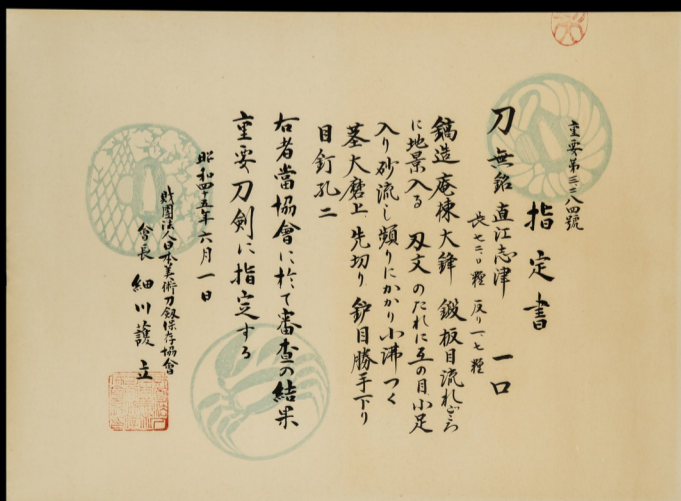 重要第三〇二八四號
指定書
刀 無銘 直江志津 一口
長七二、〇糎 反り一、七糎
鎬造庵棟大鋒 鍛板目流れごころ
に地景入る 刃文のたれに互の目小足
入り砂流し頻りにかかり小沸つく
茎大磨上先切り鑢目勝手下り
目釘孔二
右者當協會に於て審査の結果
重要刀剣に指定する
昭和四十五年六月一日
財團法人日本美術刀剣保存協會
會長 細川護立